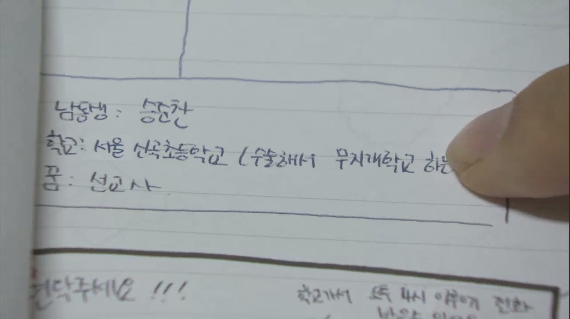 남동생: 승찬
학교: 서울 신곡초등학교 (수술해서 무지개학교 하는
꿈: 선교사
연락주세요 !!!
학교가서 오후 4시 이후에 전화